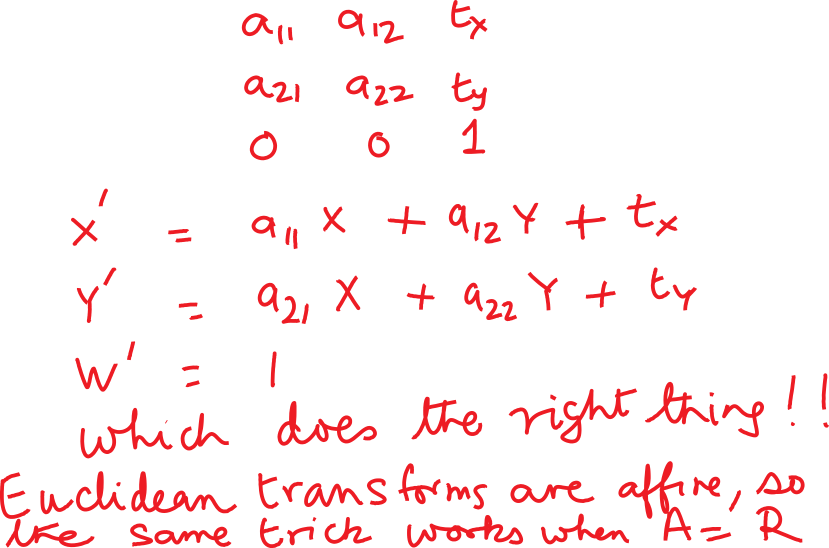 a₁₁ a₁₂ tₓ
a₂₁ a₂₂ t_y
0 0 1
X' = a₁₁ X + a₁₂ Y + tₓ
Y' = a₂₁ X + a₂₂ Y + t_Y
W' = 1
which does the right thing!!
Euclidean transforms are affine, so
the same trick works when A = R